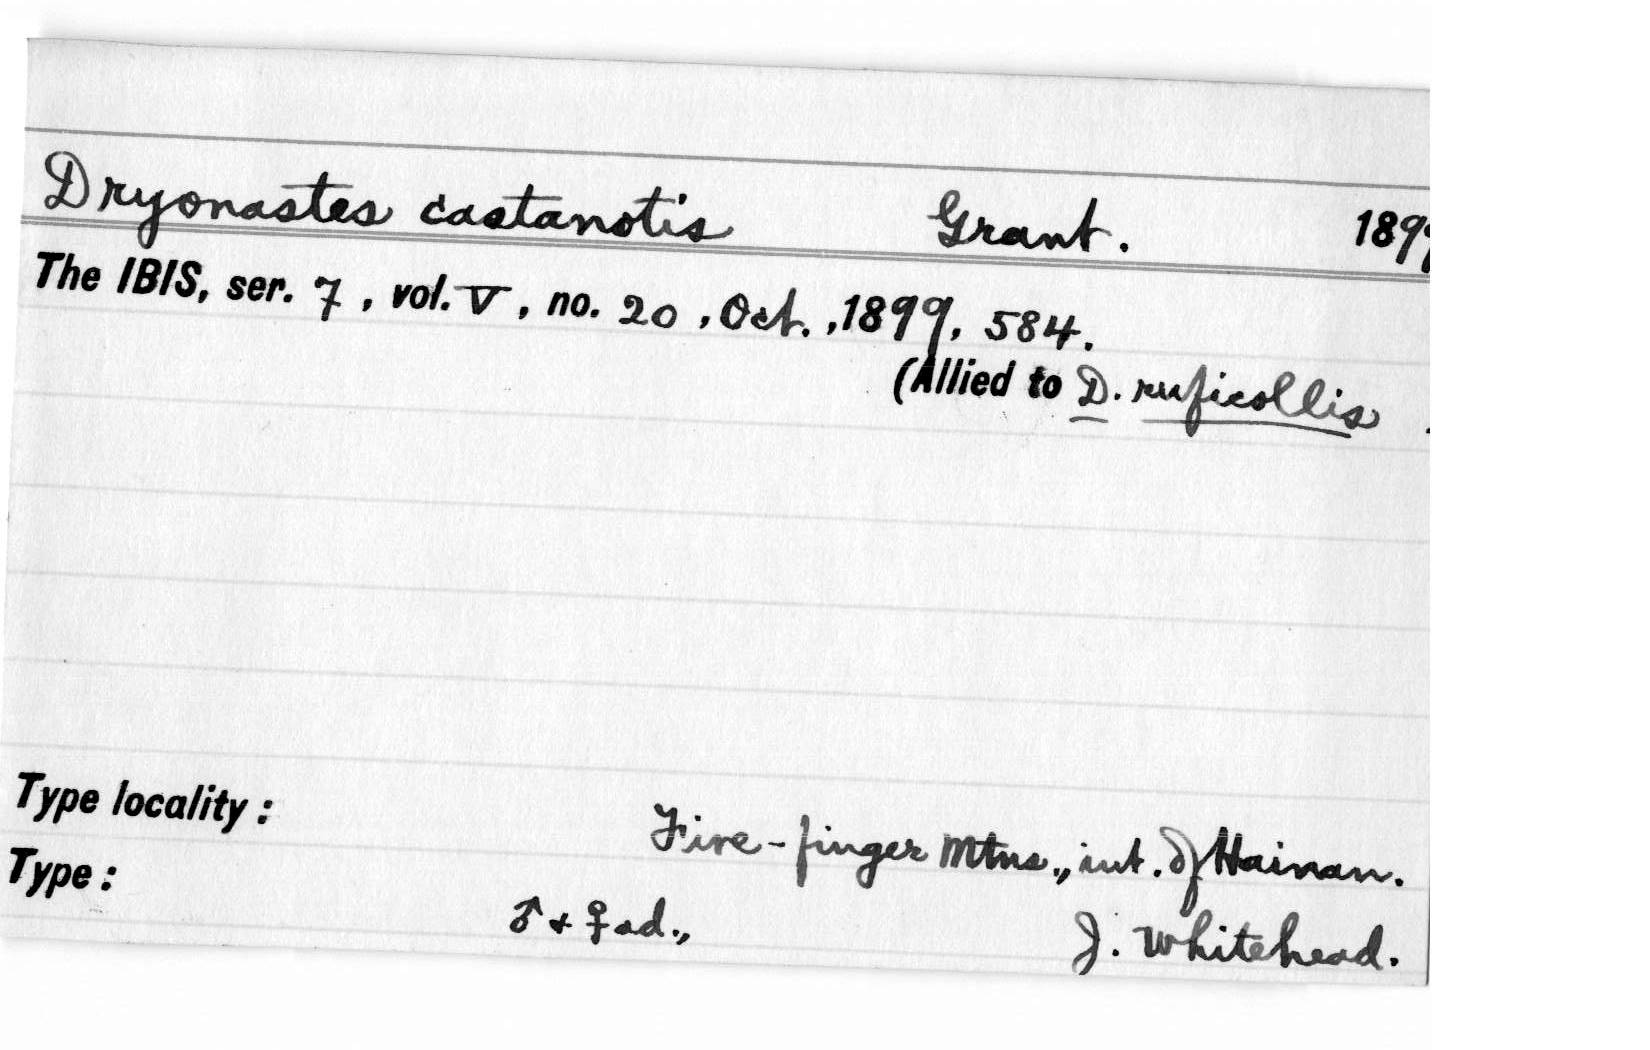 Dryonastes castanotis Grant. 1899
The IBIS, ser. 7, vol. V, no. 20, Oct., 1899, 584.
(Allied to D. ruficollis .
Type locality: Five-finger Mtns., int. of Hainan.
Type: ♂ + ♀ ad., J. Whitehead.